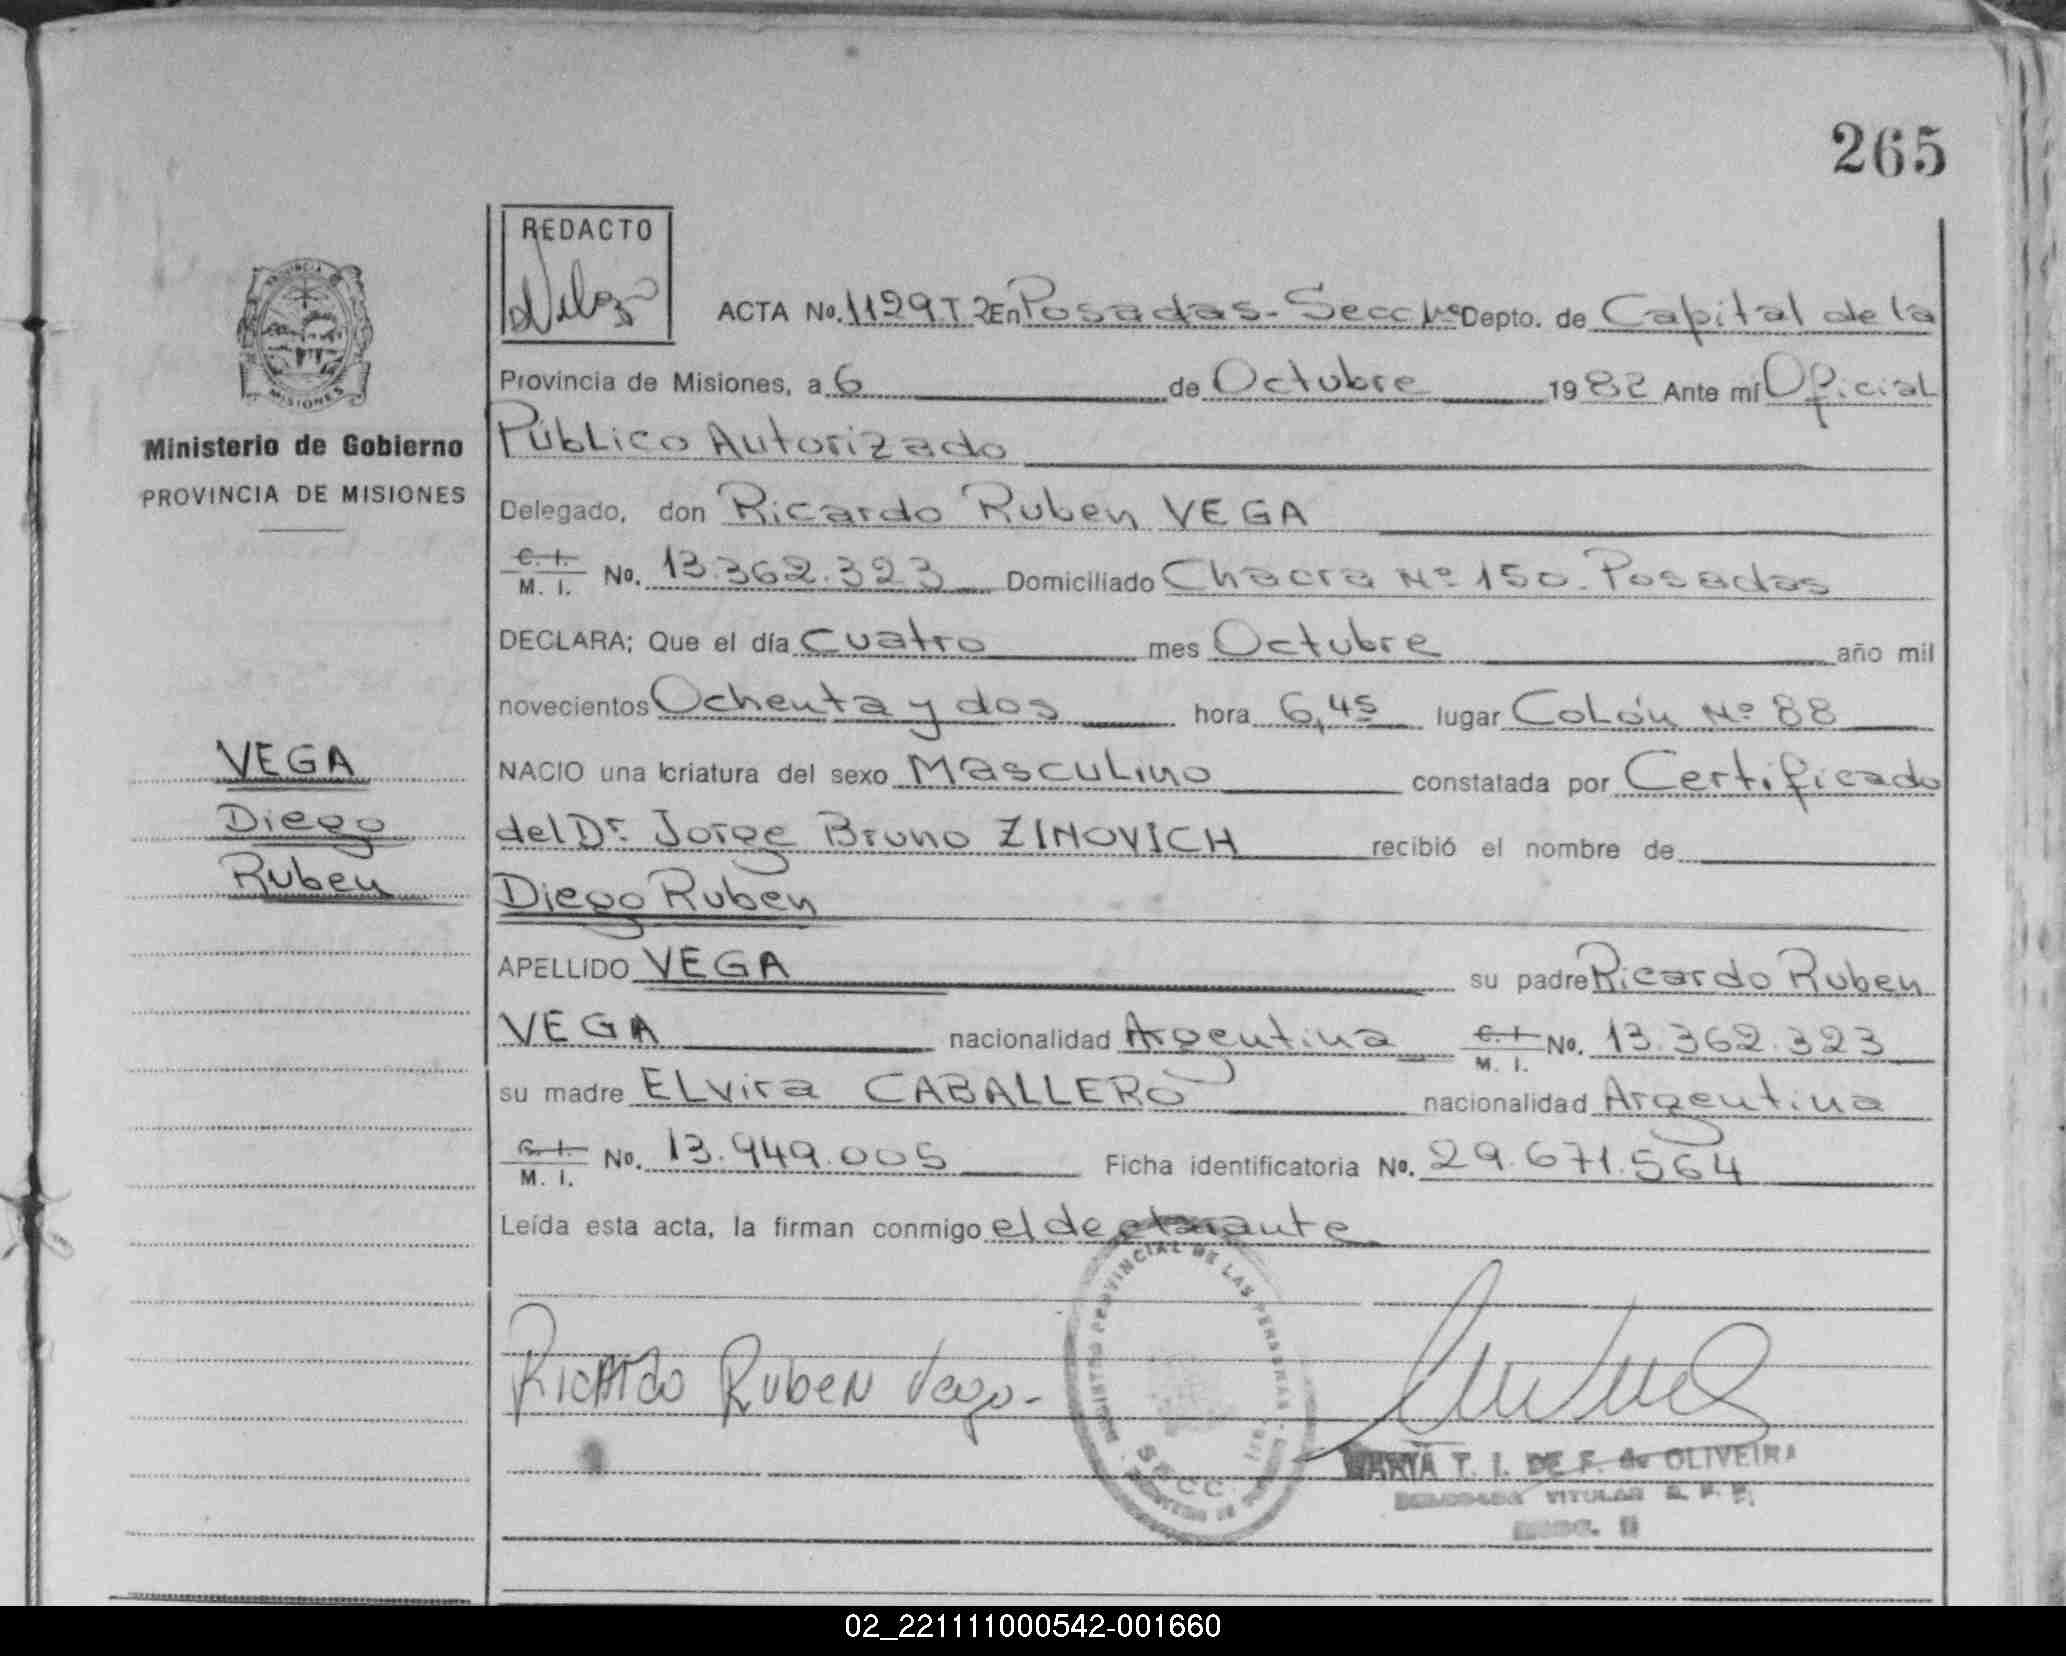 265
REDACTO
ACTA No. 1129 T 2 En Posadas - Secc 1ª Depto. de Capital de la
Provincia de Misiones, a 6 de Octubre 1982 Ante mí Oficial
Público Autorizado
Delegado, don Ricardo Ruben VEGA
C. I. M. I. No. 13.362.323 Domiciliado Chacra Nº 150. Posadas
DECLARA; Que el día Cuatro mes Octubre año mil
novecientos Ochenta y dos hora 6,45 lugar Colón Nº 88
NACIO una criatura del sexo Masculino constatada por Certificado
del Dr. Jorge Bruno ZINOVICH recibió el nombre de
Diego Ruben
APELLIDO VEGA su padre Ricardo Ruben
VEGA nacionalidad Argentina C. I. M. I. No. 13.362.323
su madre ELvira CABALLERO nacionalidad Argentina
C. I. M. I. No. 13.949.005 Ficha identificatoria No. 29.671.564
Leída esta acta, la firman conmigo el declarante
Ricardo Ruben Vega -
PROVINCIAL DE LAS PERSONAS
SECC.
MARIA T. I. DE F. de OLIVEIRA
TITULAR
PROVINCIA DE
MISIONES
Ministerio de Gobierno
PROVINCIA DE MISIONES
VEGA
Diego
Ruben
02_221111000542-001660